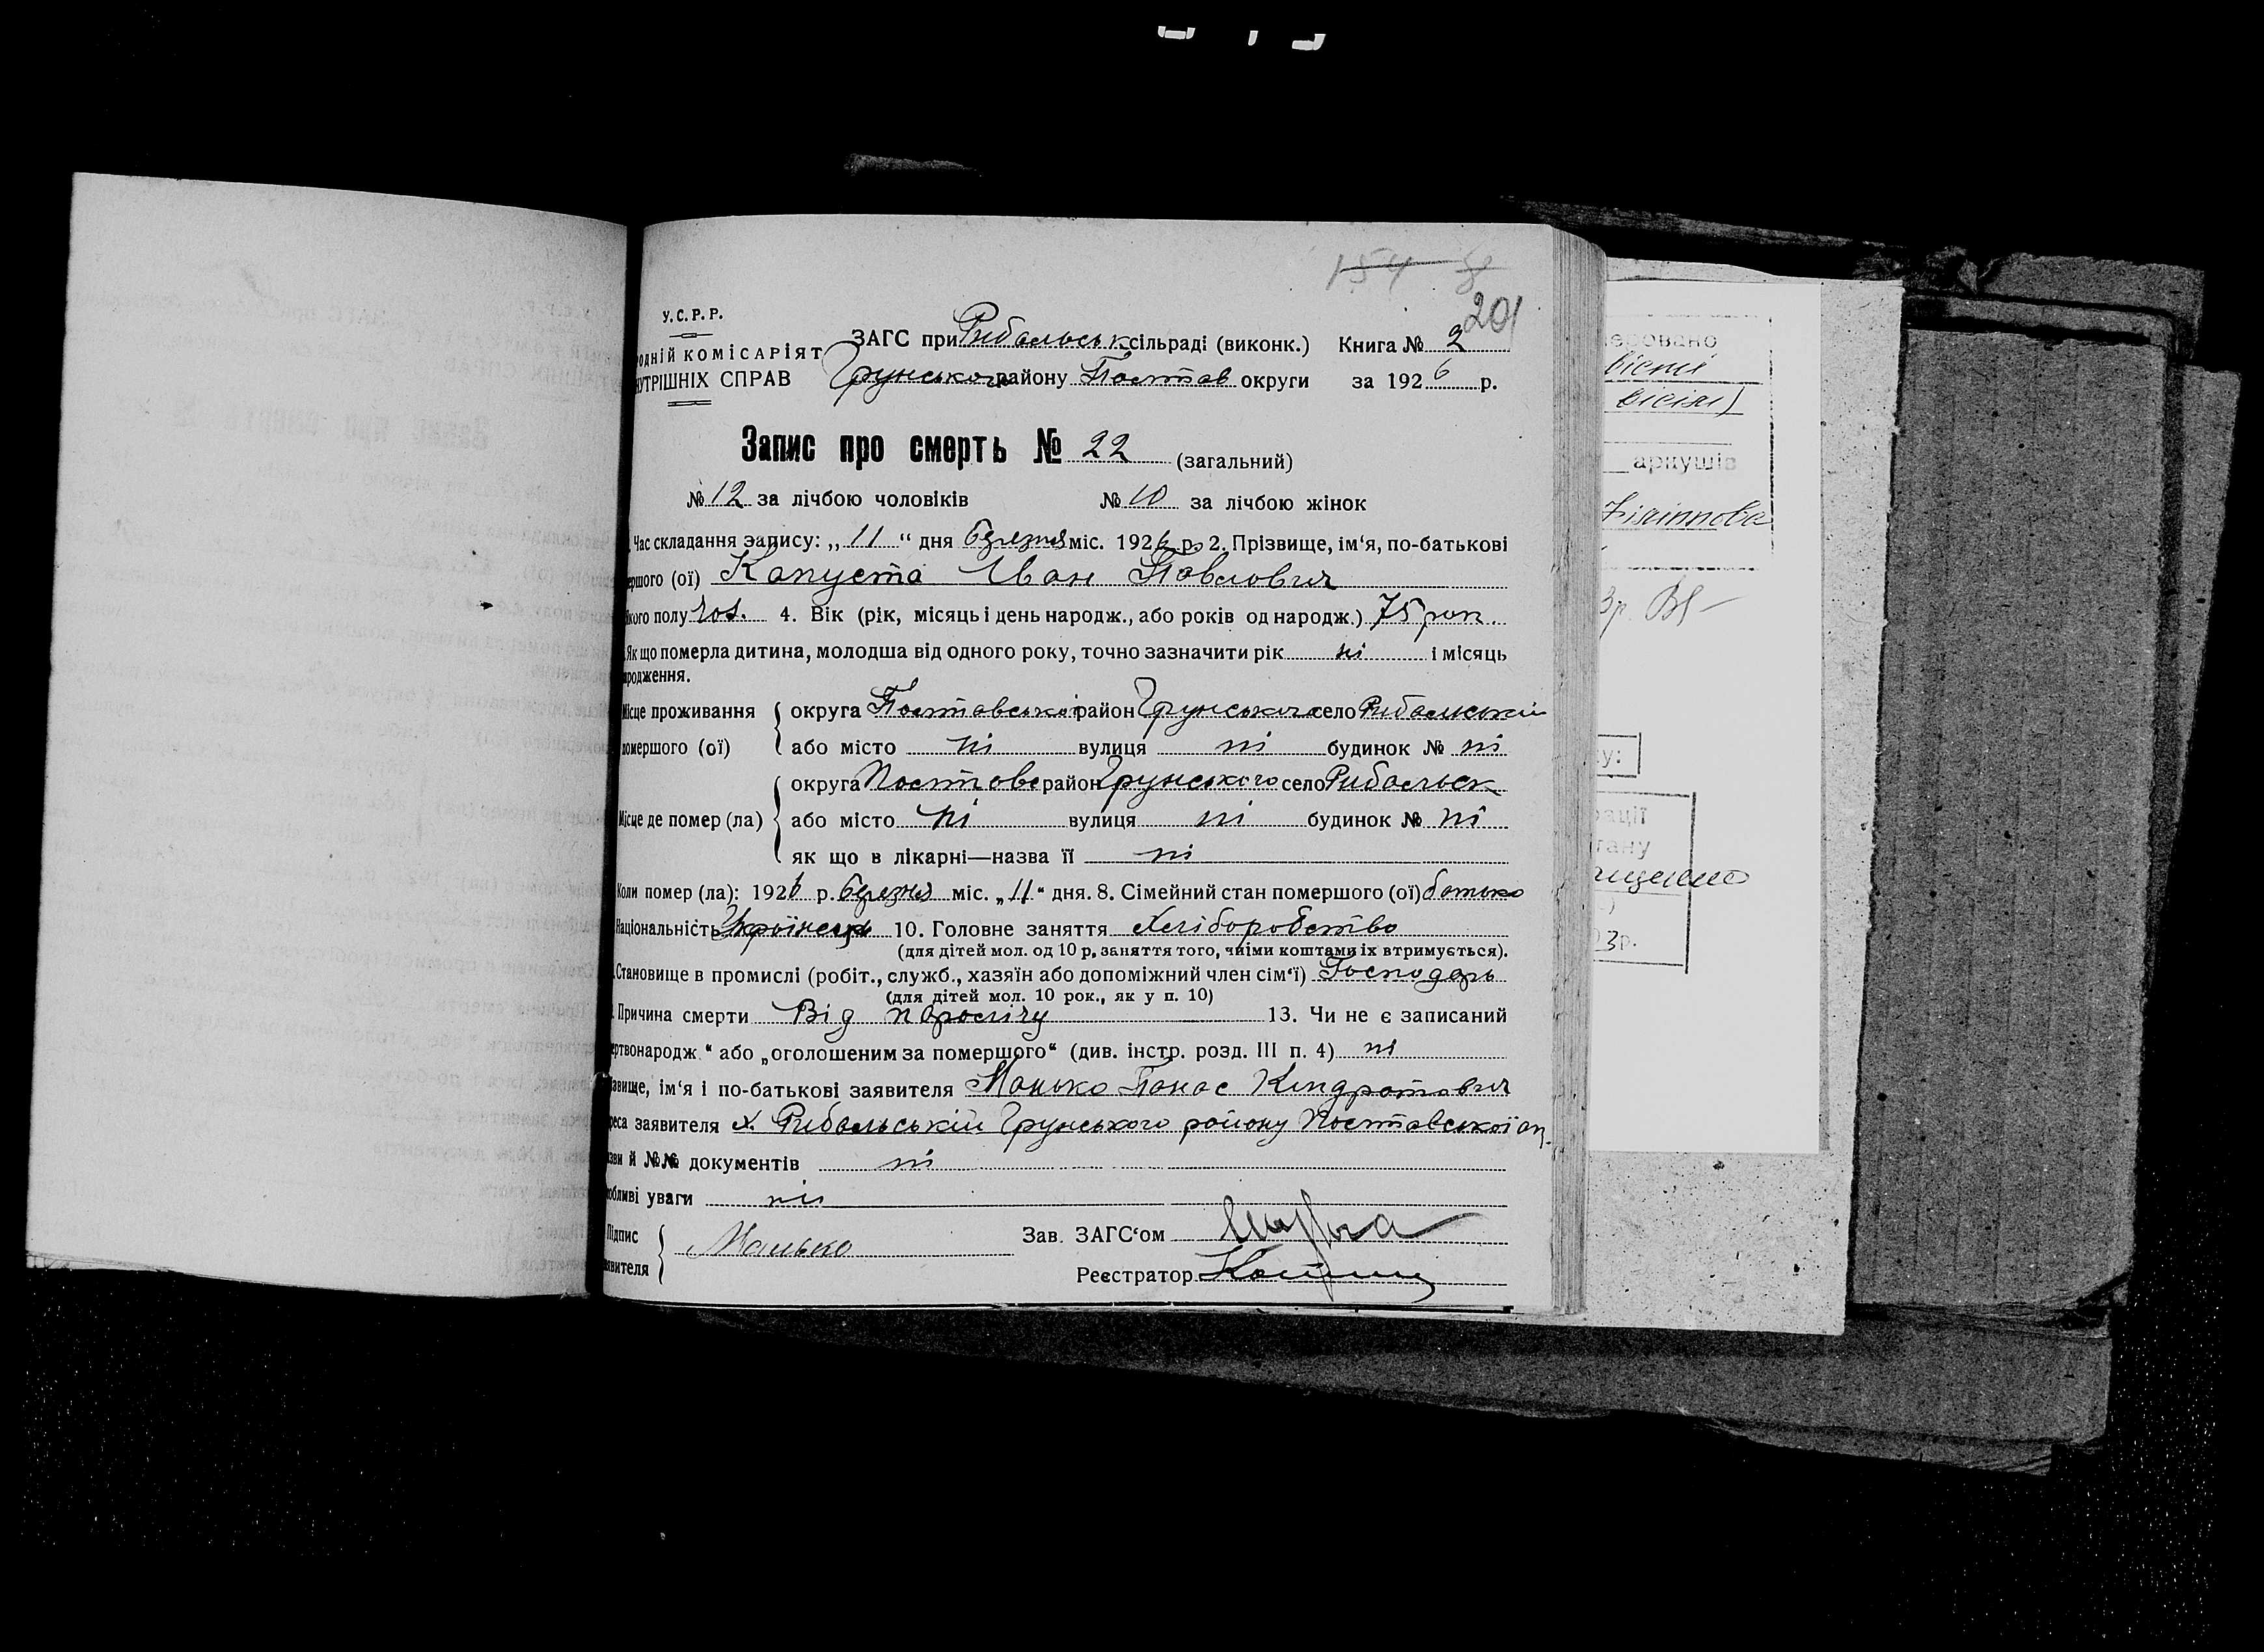 154 8
201
У.С.Р.Р.
ЗАГС при Рибальськ сільраді (виконк.) Книга № 2
родній комісаріят
Грунського району Полтав округи за 1926 р.
нутрішніх справ
Запис про смерть № 22 (загальний)
№ 12 за лічбою чоловіків № 10 за лічбою жінок
Час складання запису: „11“ дня березня міс. 1926 р. 2. Прізвище, ім‘я, по-батькові
ершого (ої) Капуста Іван Павлович
якого полу чол. 4. Вік (рік, місяць і день народж., або років од народж.) 75 рок.
Як що померла дитина, молодша від одного року, точно зазначити рік ні і місяць
народження.
Місце проживання округа Полтавської район Грунського село Рибальський
помершого (ої) або місто ні вулиця ні будинок № ні
округа Полтавс район Грунського село Рибальськ
Місце де помер (ла) або місто ні вулиця ні будинок № ні
як що в лікарні—назва її ні
Коли помер (ла): 1926 р. березня міс. „11“ дня. 8. Сімейний стан помершого (ої) батько
Національність Українець 10. Головне заняття Хліборобство
(для дітей мол. од 10 р, заняття того, чиїми коштами їх втримується).
Становище в промислі (робіт., служб., хазяїн або допоміжний член сім‘ї) Господарь
(для дітей мол. 10 рок., як у п. 10)
Причина смерти Від 13. Чи не є записаний
ертвонародж.“ або „оголошеним за помершого“ (див. інстр. розд. III п. 4) ні
звище, ім‘я і по-батькові заявителя Манько Панас Кіндратович
реса заявителя х. Рибальській Грунського району Полтавської ок.
зви й №№ документів ні
обливі уваги ні
Підпис
аявителя Манько Зав. ЗАГС‘ом
Реєстратор
еровано
аркушів
у:
рації
тану
3р.